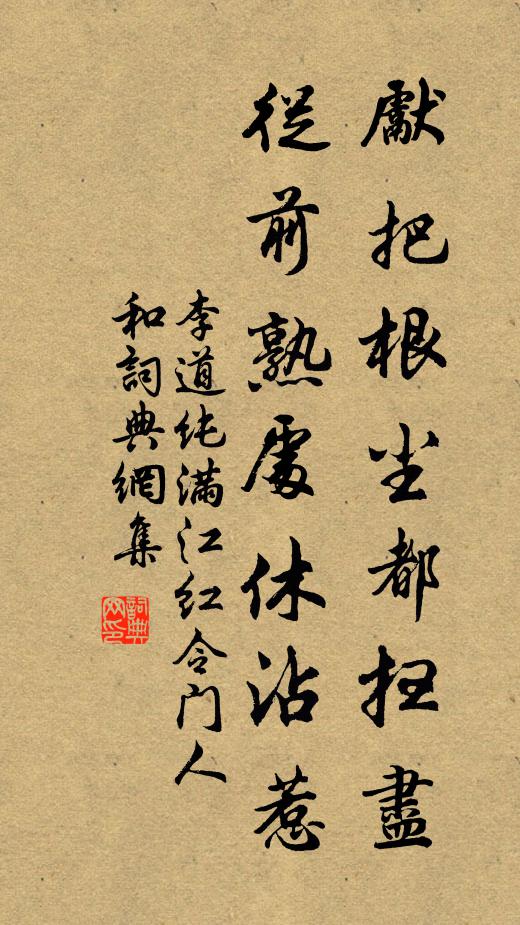 獻把根尘都扫盡
從前熟處休沾惹
李道纯满江红令门人
和詞典網集
詞典网印